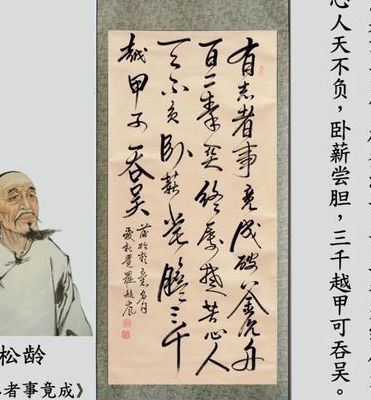 心人天不负，卧薪尝胆，三千越甲可吞吴。
有志者事竟成破釜沉舟
百二秦关终属楚苦心人
天不负卧薪尝胆三千
越甲可吞吴
松龄
者事竟成》